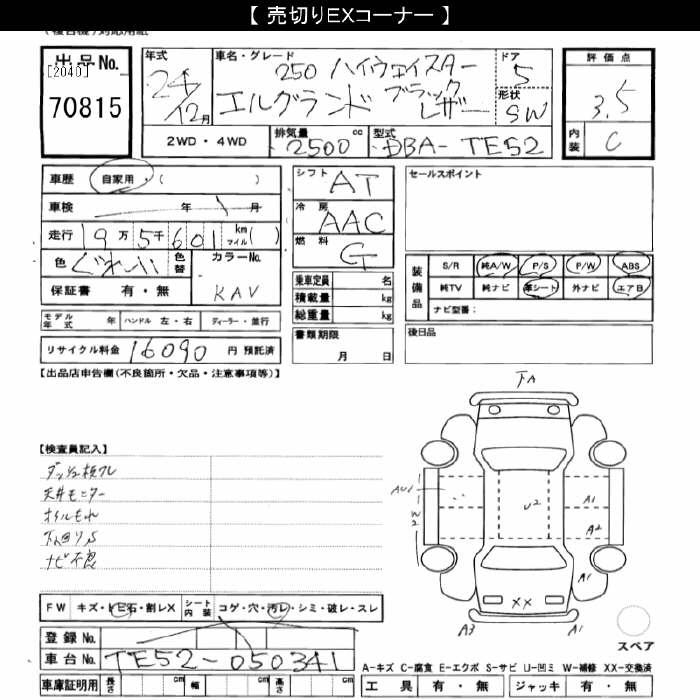 【 売切りEXコーナー 】
出品No.
[2040]
70815
年式
24年
12月
車名・グレード
250 ハイウェイスター
エルグランド ブラックレザー
ドア
5
形状
SW
評価点
3.5
内装
C
2WD・4WD
排気量 cc
2500
型式
DBA-TE52
車歴 自家用・( )
車検 年 月
走行 19万5千601 km マイル( )
色 ぐれーパール
色替
カラーNo.
KAV
保証書 有・無
モデル年式 年 ハンドル 左・右 ディーラー・並行
リサイクル料金 16090 円 預託済
シフト AT
冷房 AAC
燃料 G
乗車定員 名
積載量 kg
総重量 kg
書類期限
月 日
セールスポイント
装備品
S/R 純A/W P/S P/W ABS
純TV 純ナビ 革シート 外ナビ エアB
ナビ型番:
後日品
【出品店申告欄(不良箇所・欠品・注意事項等)】
【検査員記入】
天井モニター
オイルもれ
ナビ不良
下A
U2
A1
A2
A1
W2
XX
A3
A1
スペア
FW キズ・トビ石・割レX シート内装 コゲ・穴・汚レ・シミ・破レ・スレ
登録No.
車台No. TE52-050341
車庫証明用 長さ cm 幅 cm 高さ cm
A-キズ C-腐食 E-エクボ S-サビ U-凹ミ W-補修 XX-交換済
工具 有・無 ジャッキ 有・無